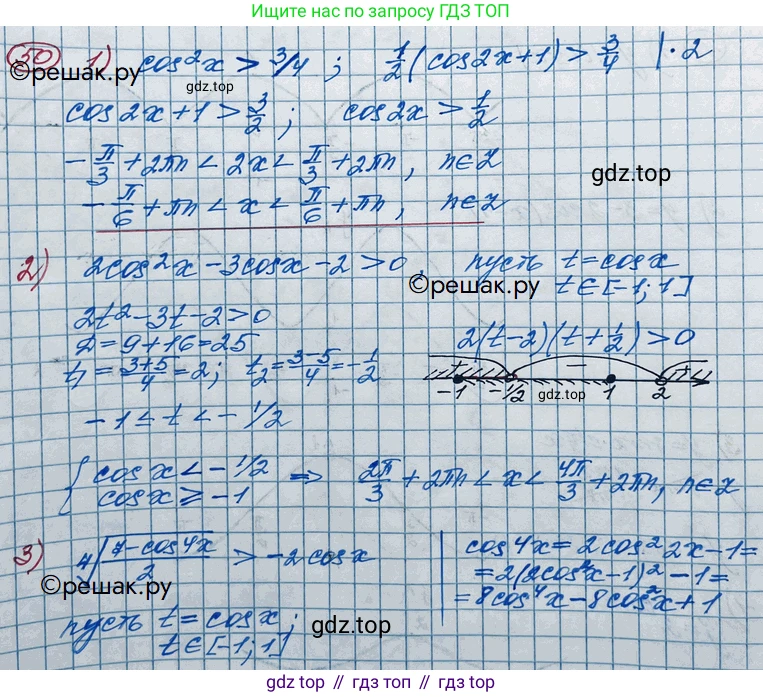 Ищите по запросу ГДЗ ТОП
50 1) cos²x > 3/4 ; 1/2(cos2x+1) > 3/4 |·2
©решак.ру
gdz.top
cos2x+1 > 3/2 ; cos2x > 1/2
-π/3 + 2πn < 2x < π/3 + 2πn, n∈Z
gdz.top
-π/6 + πn < x < π/6 + πn, n∈Z
2) 2cos²x - 3cosx - 2 > 0, пусть t = cosx
©решак.ру
t∈[-1; 1]
2t² - 3t - 2 > 0
D = 9 + 16 = 25
2(t-2)(t+1/2) > 0
t₁ = (3+5)/4 = 2; t₂ = (3-5)/4 = -1/2
+ − +
-1 -1/2 1 2
gdz.top
-1 ≤ t < -1/2
{ cosx < -1/2
cosx ≥ -1 ⇒ 2π/3 + 2πn < x < 4π/3 + 2πn, n∈Z
3) ⁴√((7-cos4x)/2) > -2cosx
cos4x = 2cos²2x - 1 =
= 2(2cos²x - 1)² - 1 =
= 8cos⁴x - 8cos²x + 1
©решак.ру
пусть t = cosx;
t∈[-1; 1]
gdz.top
gdz top // гдз топ // gdz.top